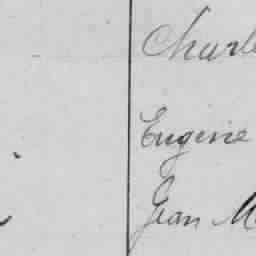 Charl
Eugene
Jean M